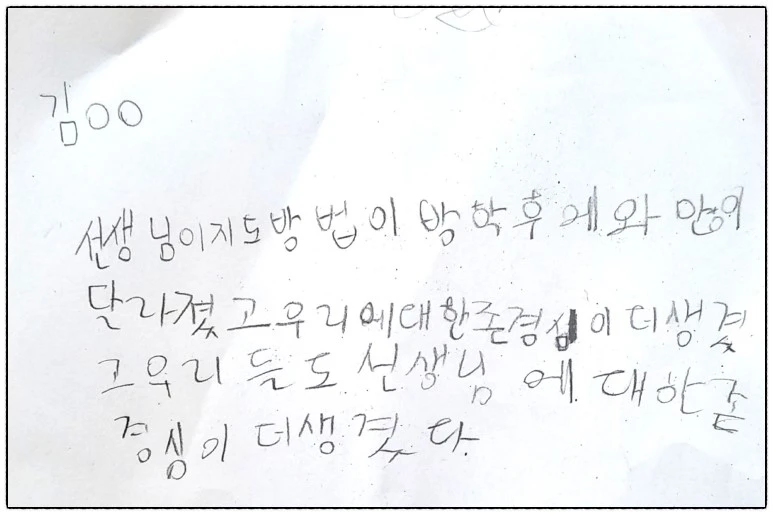 김○○
선생님이 지도방법이 방학후에 와 많이
달라졌고 우리에 대한 존경심이 더 생겼
고 우리들도 선생님에 대한 존
경심이 더 생겼다